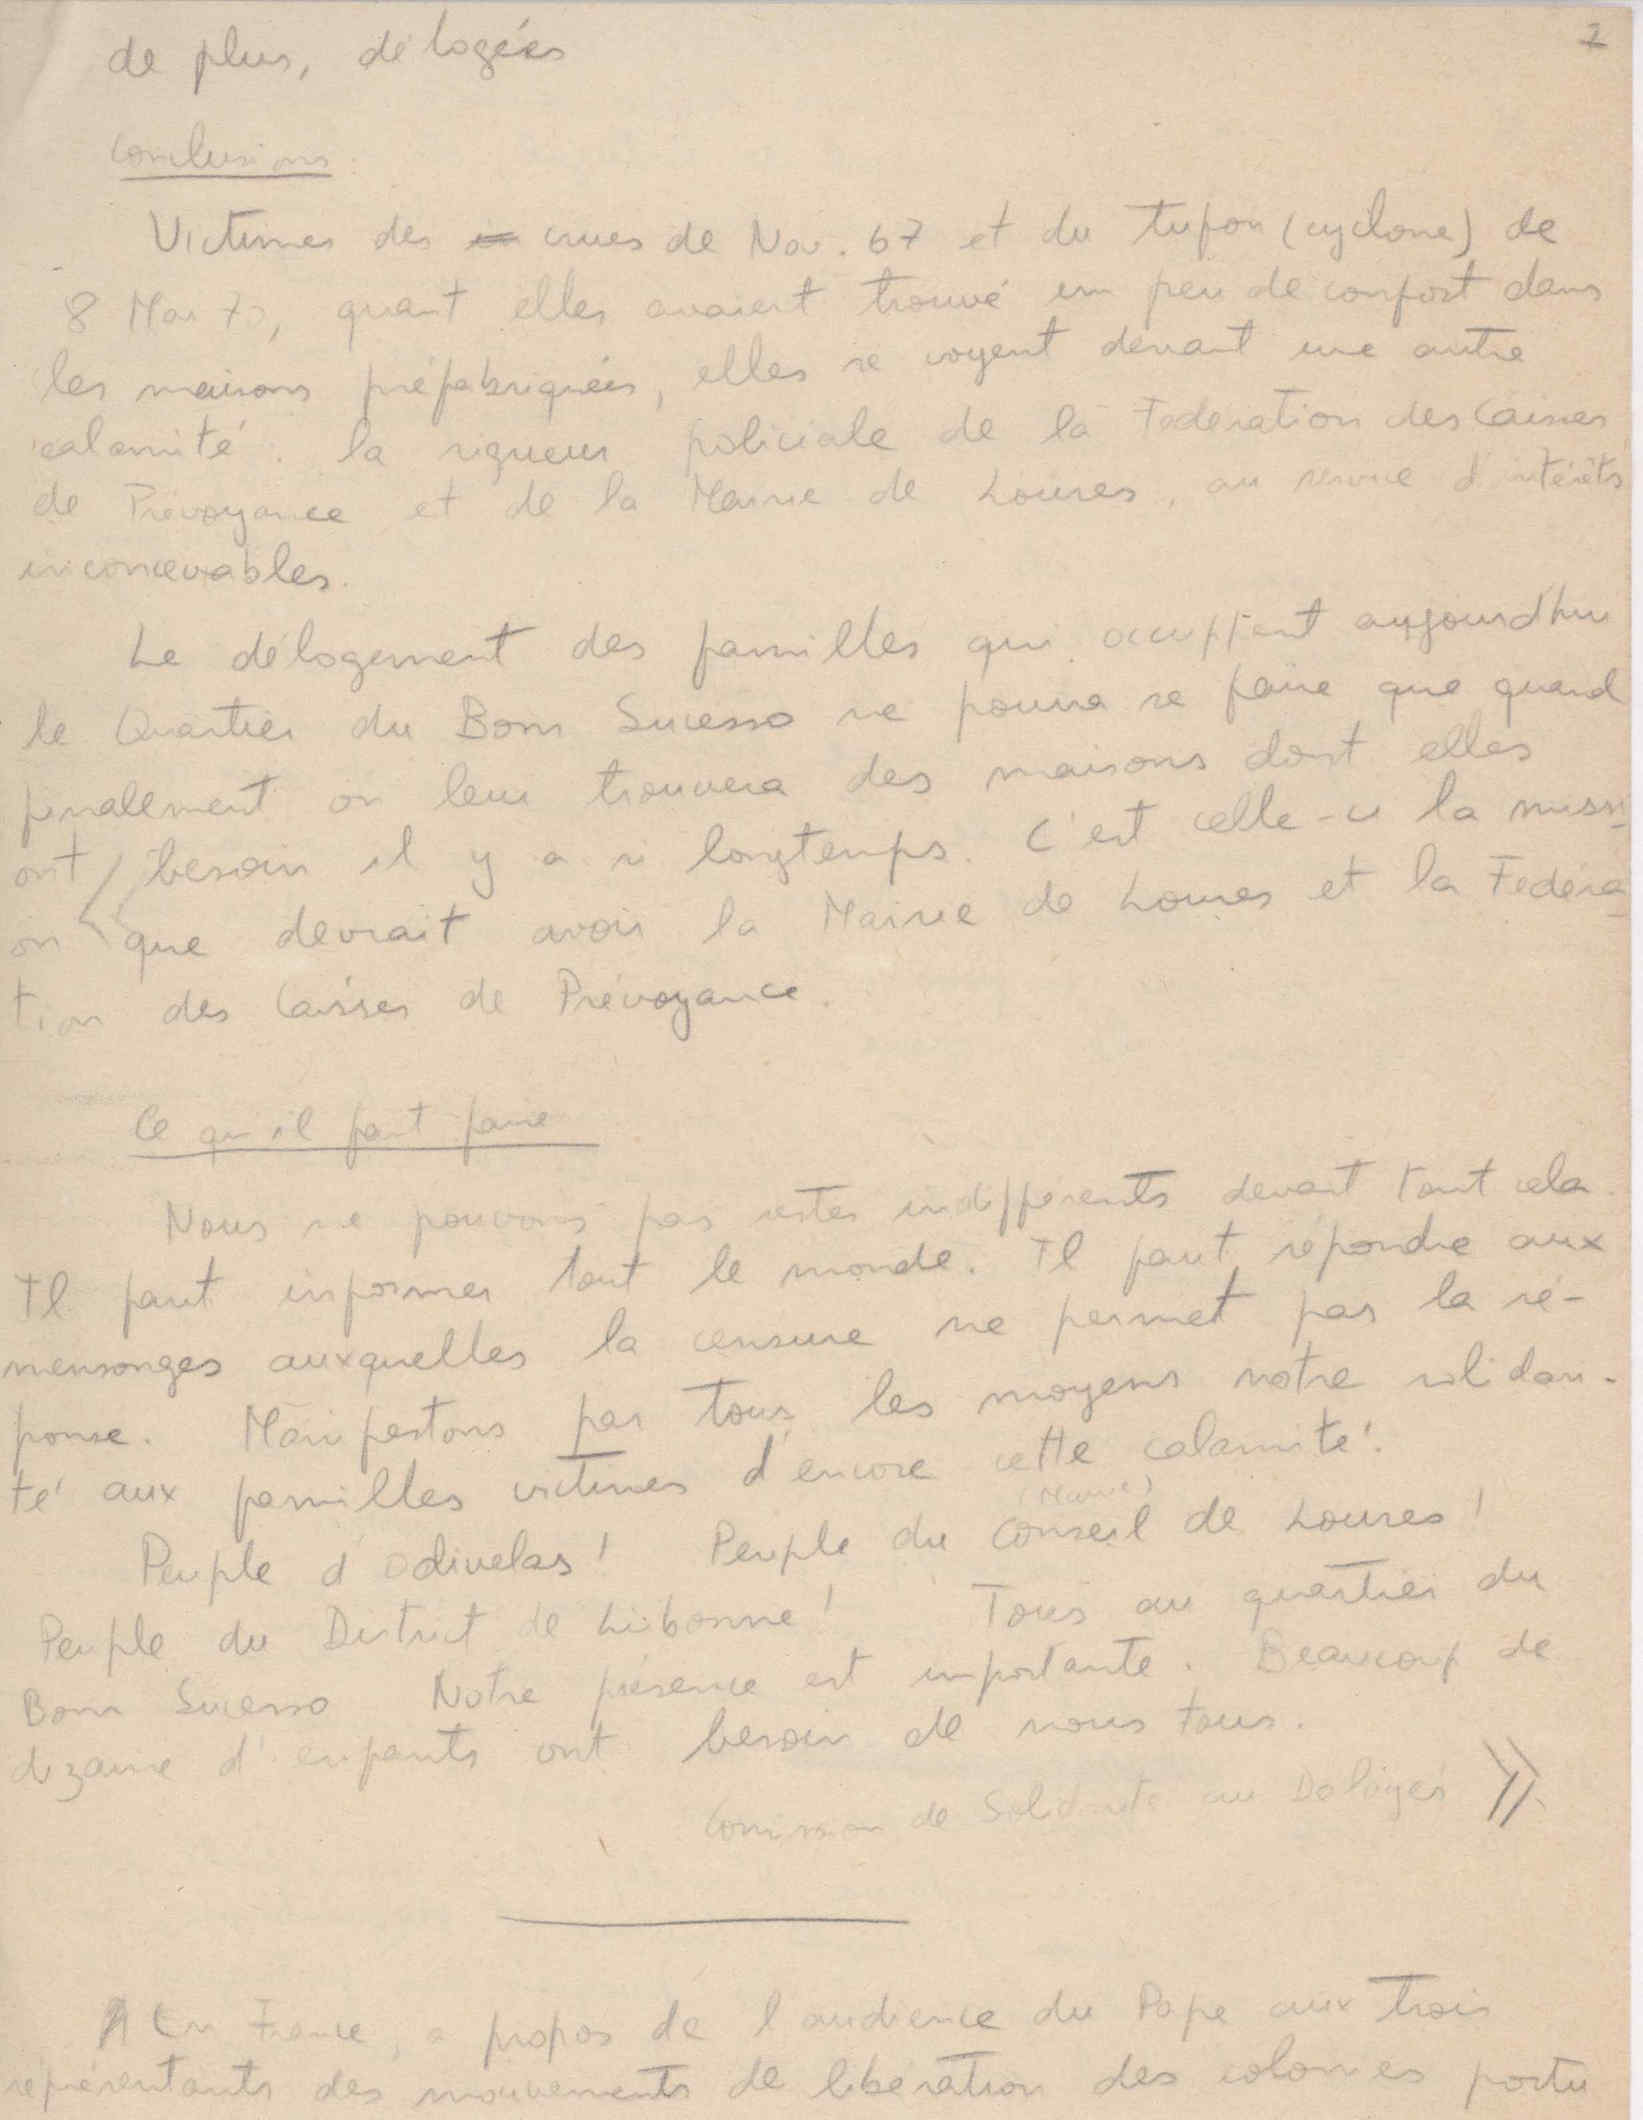 7
de plus, délogées
Conclusions:
Victimes des crues de Nov. 67 et du tufon (cyclone) de
8 Mai 70, quant elles avaient trouvé un peu de confort dans
les maisons préfabriquées, elles se voyent devant une autre
calamité: la rigueur policiale de la Fédération des Caisses
de Prévoyance et de la Mairie de Loures, au service d'intérêts
inconcevables.
Le délogement des familles qui occuppent aujourd'hui
le Quartier du Bom Sucesso ne pourra se faire que quand
finalement on leur trouvera des maisons dont elles
ont besoin il y a si longtemps. C'est celle-ci la missi-
on que devrait avoir la Mairie de Loures et la Fédéra-
tion des Caisses de Prévoyance.
Ce qu'il faut faire
Nous ne pouvons pas rester indifférents devant tout cela.
Il faut informer tout le monde. Il faut répondre aux
mensonges auxquelles la censure ne permet pas la ré-
ponse. Manifestons par tous les moyens notre solidari-
té aux familles victimes d'encore cette calamité!
(Mairie)
Peuple d'Odivelas! Peuple du Conseil de Loures!
Peuple du District de Lisbonne! Tous au quartier du
Bom Sucesso Notre présence est importante. Beaucoup de
dizaine d'enfants ont besoin de nous tous.
Commission de Solidarité au Délogés »
En France, a propos de l'audience du Pape aux trois
représentants des mouvements de libération des colonies portu